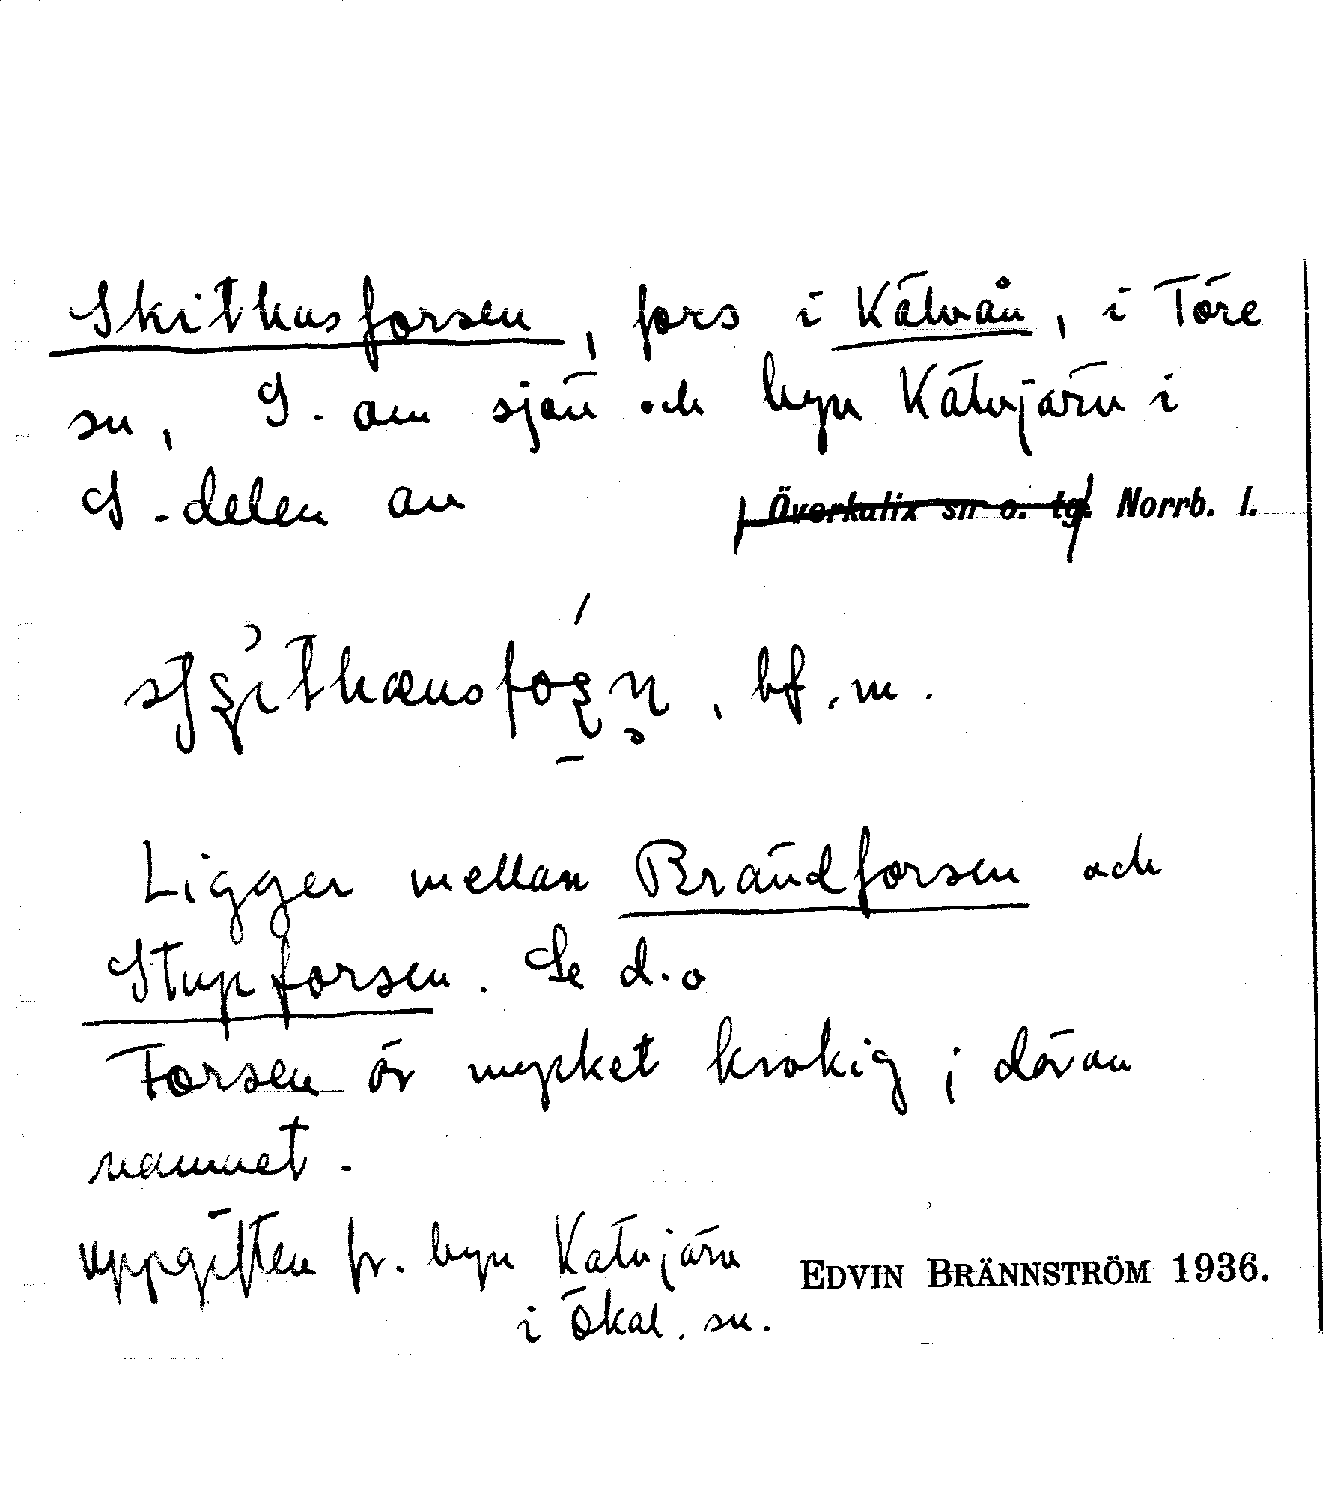 Skithusforsen, fors i Kälvån, i Töre
sn, S. om sjön och byn Kätvjärn i
S-delen av Överkalix sn o. tg. Norrb. l.
bf. m.
Ligger mellan Brändforsen och
Stupforsen. Se d.o
Forsen är mycket krokig; därav
namnet.
uppgiften fr. byn Kätvjärn
i Ökal. sn.
EDVIN BRÄNNSTRÖM 1936.